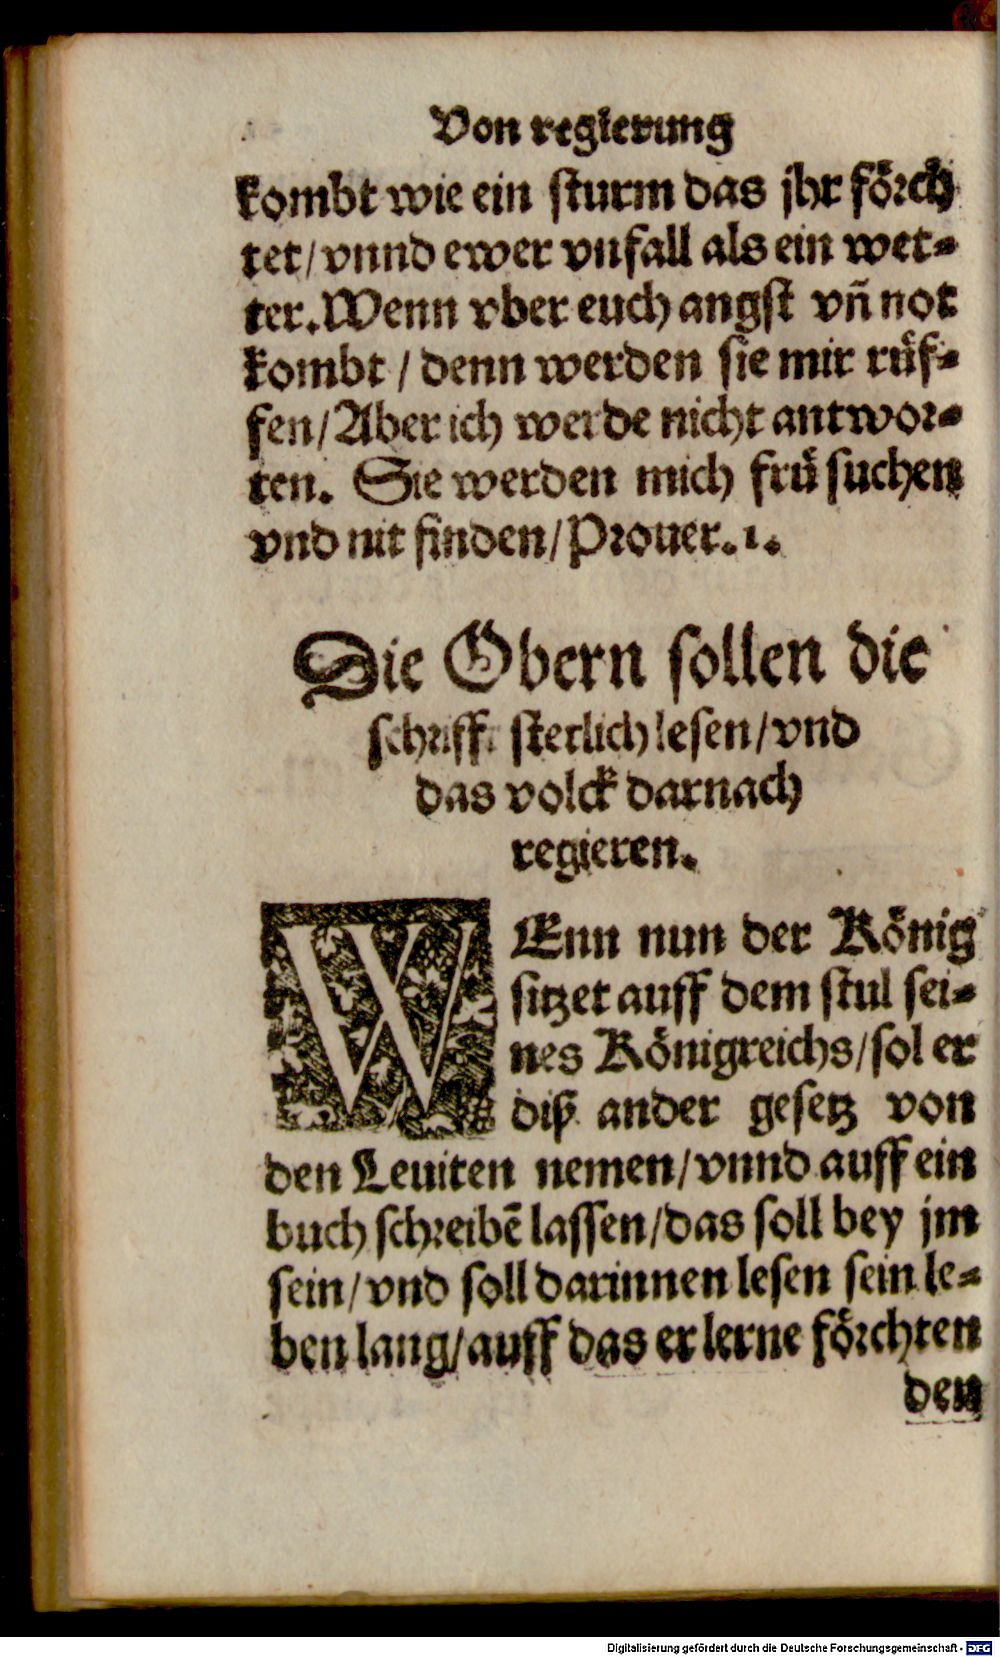 Von regierung
kombt wie ein sturm das jhr förch
tet/vnnd ewer vnfall als ein wet-
ter. Wenn vber euch angst vñ not
kombt / denn werden sie mir rüf-
fen/Aber ich werde nicht antwor-
ten. Sie werden mich frü suchen
vnd nit finden/Prouer. 1.
Die Obern sollen die
schrifft stetlich lesen/vnd
das volck darnach
regieren.
WEnn nun der König
sitzet auff dem stul sei-
nes Königreichs/sol er
diß ander gesetz von
den Leuiten nemen/vnnd auff ein
buch schreibē lassen/das soll bey jm
sein/vnd soll darinnen lesen sein le-
ben lang/auff das er lerne förchten
den
Digitalisierung gefördert durch die Deutsche Forschungsgemeinschaft - DFG